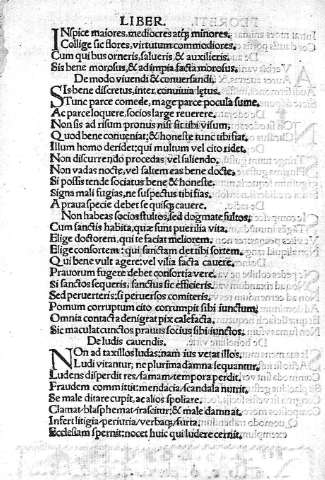 LIBER.
INspice maiores, mediocres atq; minores.
Collige sic flores, virtutum commodiores.
Cum quibus orneris, salueris & auxilieris.
Sis bene morosus, & ad impia facta morosus.
De modo viuendi & conuersandi.
SIs bene discretus, inter conuiuia lętus.
STunc parce comede, mage parce pocula sume.
Ac parce loquere, socios large reuerere.
Non sis ad risum pronus nisi sit tibi visum,
Quod bene conueniat, & honeste tunc tibi fiat.
Illum homo deridet: qui multum vel cito ridet.
Non discurrendo procedas, vel saliendo.
Non vadas nocte, vel saltem eas bene docte,
Si possis tende sociatus bene & honeste.
Signa mali fugias, ne suspectus tibi fias.
A praua specie debet se quisq; cauere.
Non habeas socios stultos, sed dogmate fultos,
Cum sanctis habita, quæ sunt puerilia vita.
Elige doctorem, qui te faciat meliorem.
Elige consortem: qui sanctam det tibi sortem.
Qui bene vult agere: vel vilia facta cauere,
Prauorum fugere debet consortia vere.
Si sanctos sequeris: sanctus sic efficieris.
Sed peruerteris; si peruersos comiteris.
Pomum corruptum cito corrumpit sibi iunctum;
Omnia contacta denigrat pix calefacta.
Sic maculat cunctos prauus socius sibi iunctos.
De ludis cauendis.
NOn ad taxillos ludas: nam ius vetat illos.
Ludi vitantur, ne plurima damna sequantur.
Ludens disperdit res, famam, tempora perdit.
Fraudem committit: mendacia, scandala nutrit.
Se male ditare cupit, ac alios spoliare.
Clamat, blasphemat, irascitur, & male damnat.
Infert litigia, periuria, verbaq; furta.
Ecclesiam spernit: nocet huic qui ludere cernit.